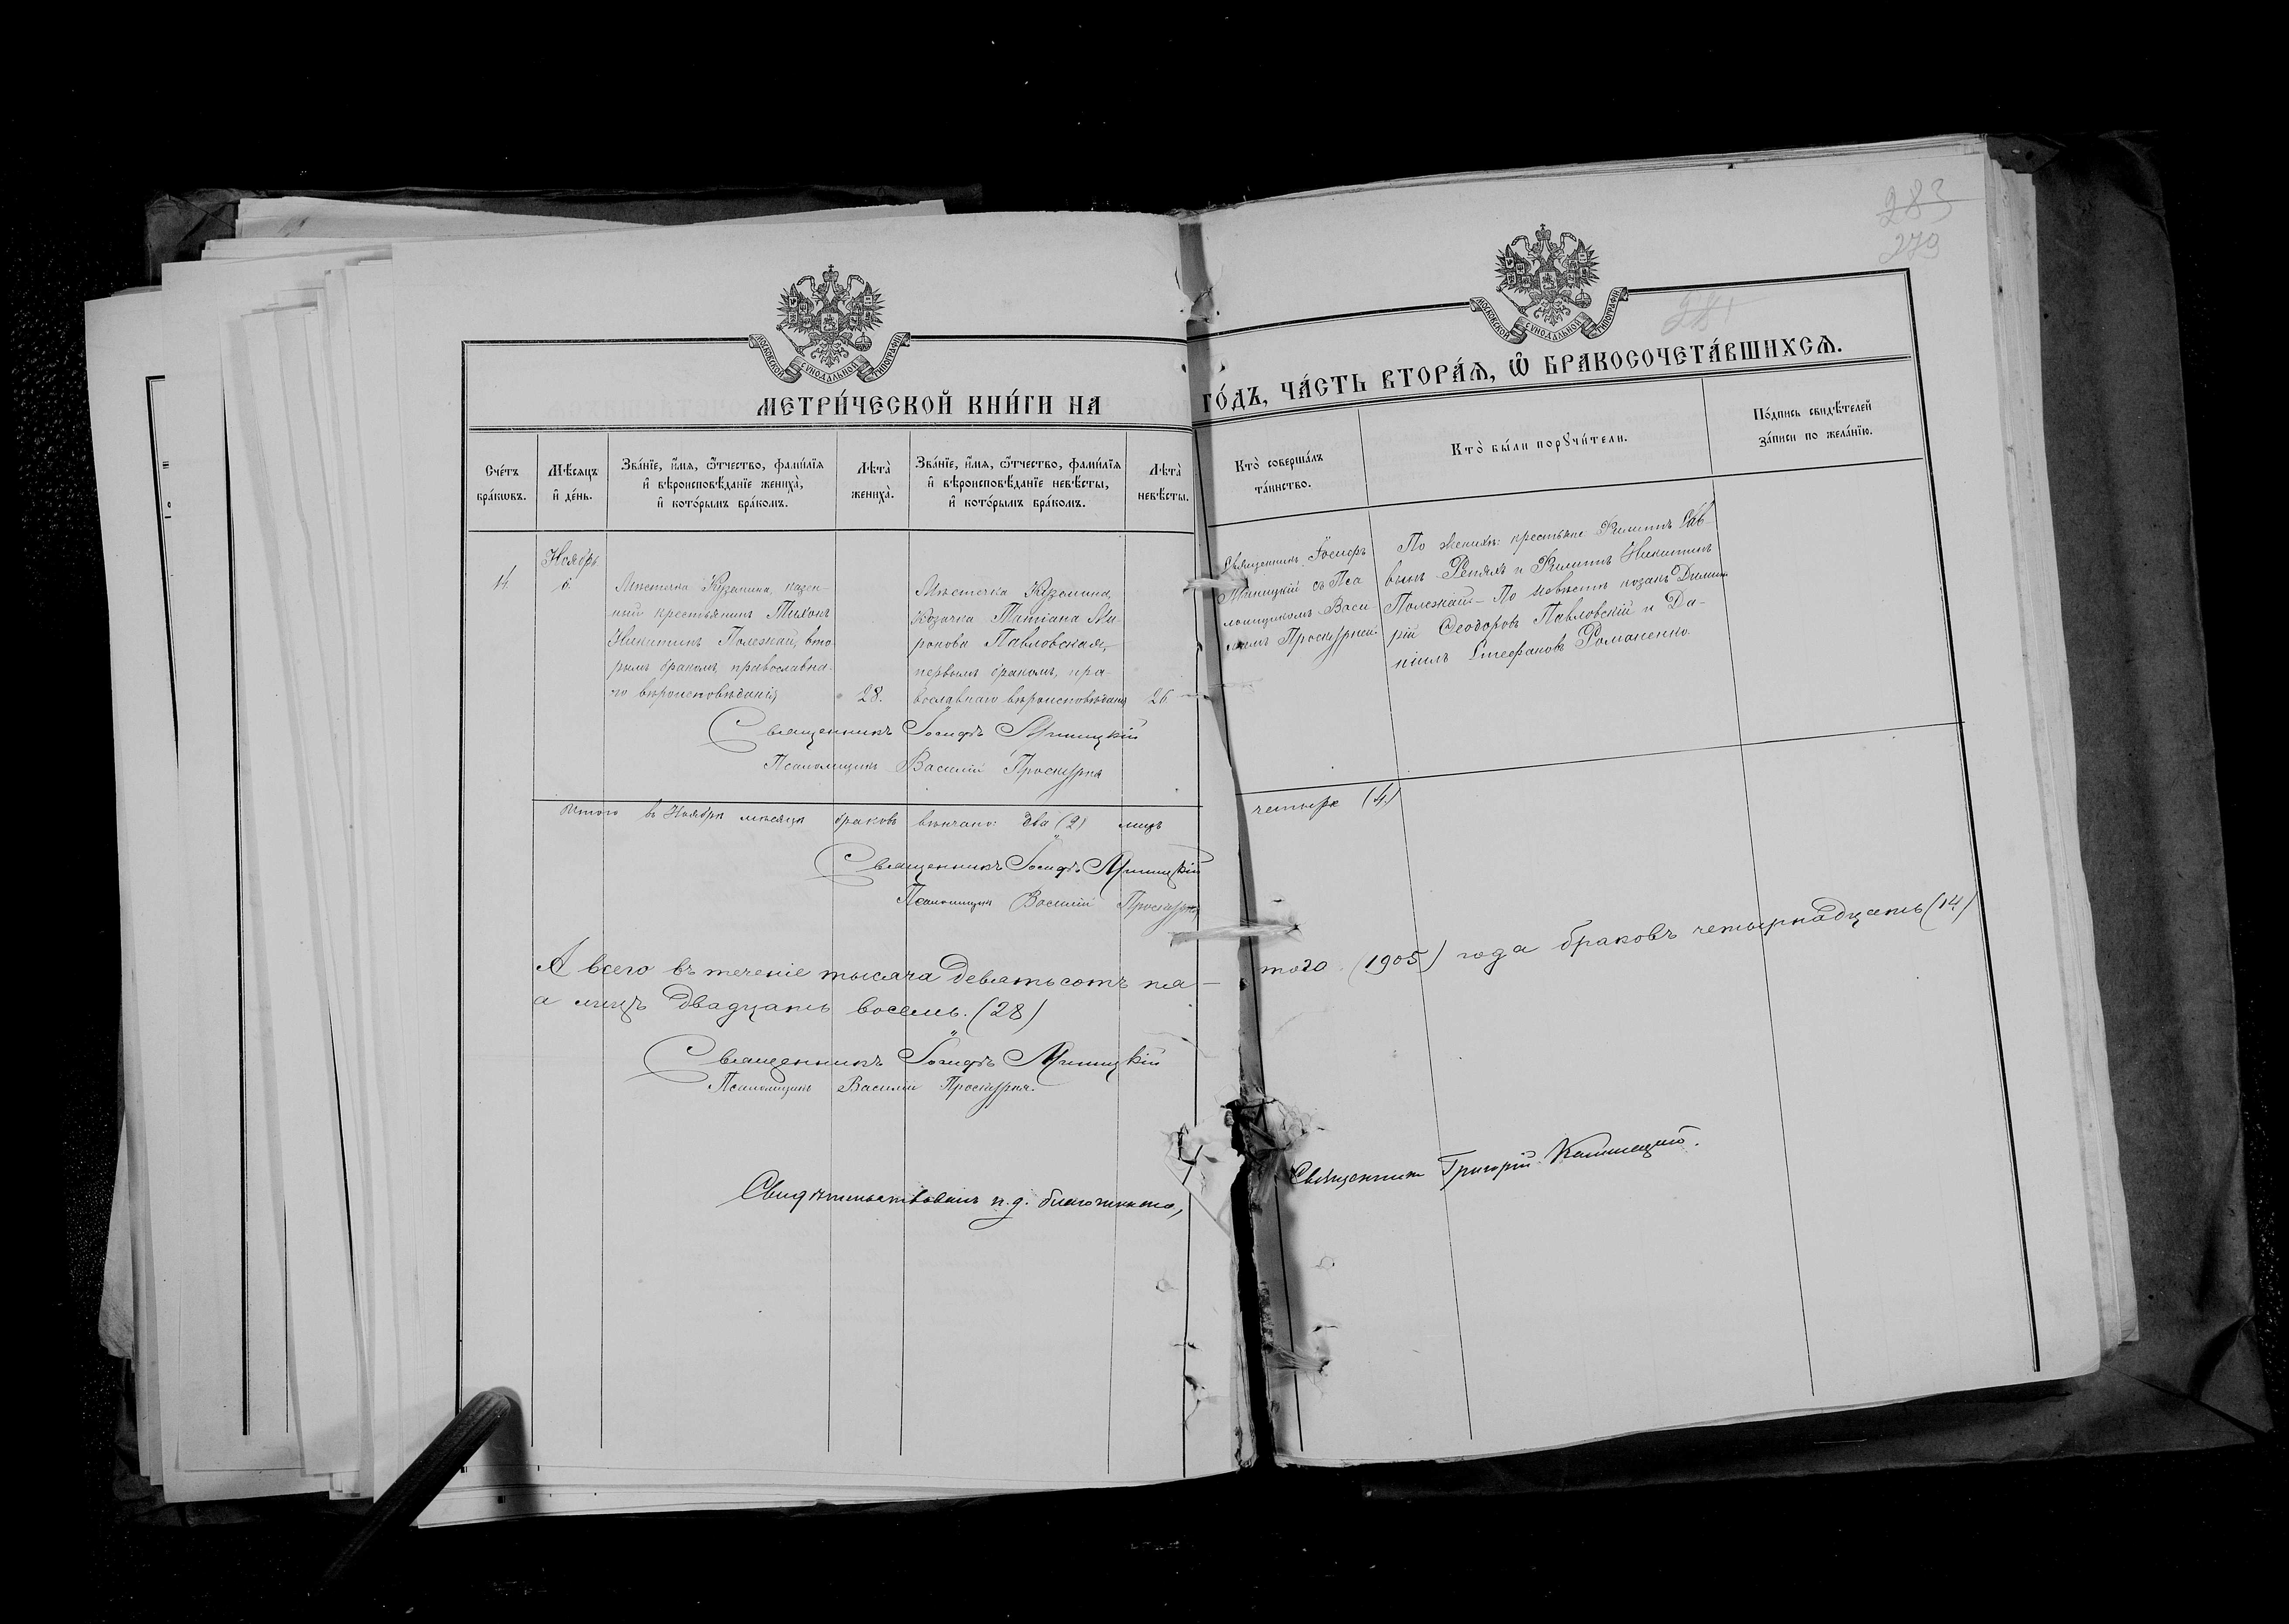 283
279
МОСКОВСКОЙ СѴНОДАЛЬНОЙ ТИПОГРАФІИ
МОСКОВСКОЙ СѴНОДАЛЬНОЙ ТИПОГРАФІИ
МЕТРИ́ЧЕСКОЙ КНИ́ГИ НА
ГО́ДЪ, ЧА́СТЬ ВТОРА́Ѧ, Ѽ БРАКОСОЧЕТА́ВШИХСѦ.
Сче́тъ
бра́кѡвъ.
Мѣ́сѧцъ
и҆ де́нь.
Зва́нїе, и҆́мѧ, ѻ҆́тчество, фами́лїѧ
и҆ вѣроисповѣ́данїе жениха̀,
и҆ кото́рымъ бра́комъ.
Лѣ́та
жениха̀.
Зва́нїе, и҆́мѧ, ѻ҆́тчество, фами́лїѧ
и҆ вѣроисповѣ́данїе невѣ́сты,
и҆ кото́рымъ бра́комъ.
Лѣ́та
невѣ́сты.
Кто̀ соверша́лъ
та́инство.
Кто̀ бы́ли порꙋчи́тели.
По́дпись свидѣ́телей
за́писи по жела́нїю.
14
Ноябрь
6.
Мѣстечка Кузмина, казен-
ный крестьянинъ Тихонъ
Никитинъ Полежай, вто
рымъ бракомъ, православна-
го вѣроисповѣданія
28.
Мѣстечка Кузмина,
Козачка Татіана Ми-
ронова Павловская,
первымъ бракомъ, пра-
вославнаго вѣроисповѣданія
26
Священникъ Іосифъ
съ Пса
ломщикомъ Васи
ліемъ Проскурней.
По женихѣ: крестьяне Филиппъ Сав-
винъ и Филиппъ Никитинъ
Полежай – По невѣстѣ козаки Димит
рій Ѳеодоровъ Павловскій и Да-
ніилъ Стефановъ Романенко
Священникъ Іосифъ
Псаломщикъ Василій Проскурня
Итого въ Ноябрѣ мѣсяцѣ браковъ вѣнчано: два (2) лицъ
четыре (4)
Священникъ Іосифъ
Псаломщикъ Василій Проскурня
А всего въ теченіе тысяча девятьсотъ пя-
таго (1905) года браковъ четырнадцать (14)
а лицъ двадцать восемь. (28)
Священникъ Іосифъ
Псаломщикъ Василій Проскурня.
Свидѣтельствовалъ и. д. благочиннаго,
Священникъ Григорій